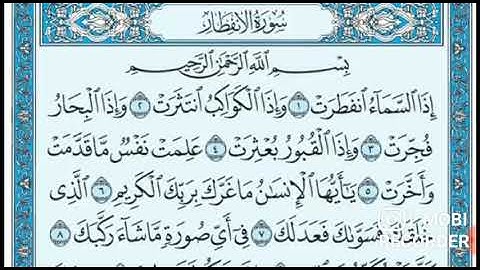 سُورَةُ الانفِطَارِ
بِسْمِ اللَّهِ الرَّحْمَٰنِ الرَّحِيمِ
إِذَا السَّمَاءُ انفَطَرَتْ ١ وَإِذَا الْكَوَاكِبُ انتَثَرَتْ ٢ وَإِذَا الْبِحَارُ
فُجِّرَتْ ٣ وَإِذَا الْقُبُورُ بُعْثِرَتْ ٤ عَلِمَتْ نَفْسٌ مَّا قَدَّمَتْ
وَأَخَّرَتْ ٥ يَا أَيُّهَا الْإِنسَانُ مَا غَرَّكَ بِرَبِّكَ الْكَرِيمِ ٦ الَّذِي
خَلَقَكَ فَسَوَّاكَ فَعَدَلَكَ ٧ فِي أَيِّ صُورَةٍ مَّا شَاءَ رَكَّبَكَ ٨
MOBI
RECORDER